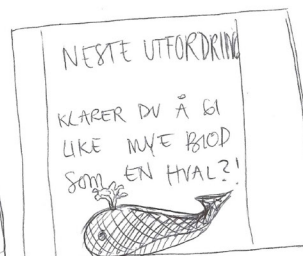 NESTE UTFORDRING
KLARER DU Å GI
LIKE MYE BLOD
SOM EN HVAL?!